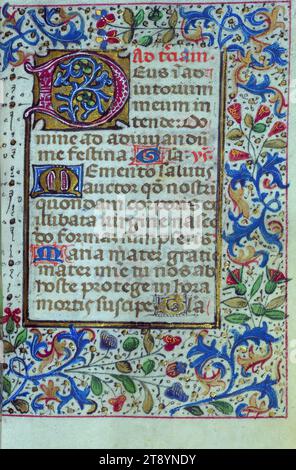 Ad tciam
Deus i ad
iutorium
meum in
tende Do
mine ad adiuuandu
me festina Gla ys
Memento salutis
auctor qd nostri
quondam corporis
illibata virgine nasce
do formam sumpseris
Maria mater gratie
mater mie tu nos ab
hoste protege in hora
mortis suscipe Gla
alamy
Image ID: 2T8YNDY
www.alamy.com